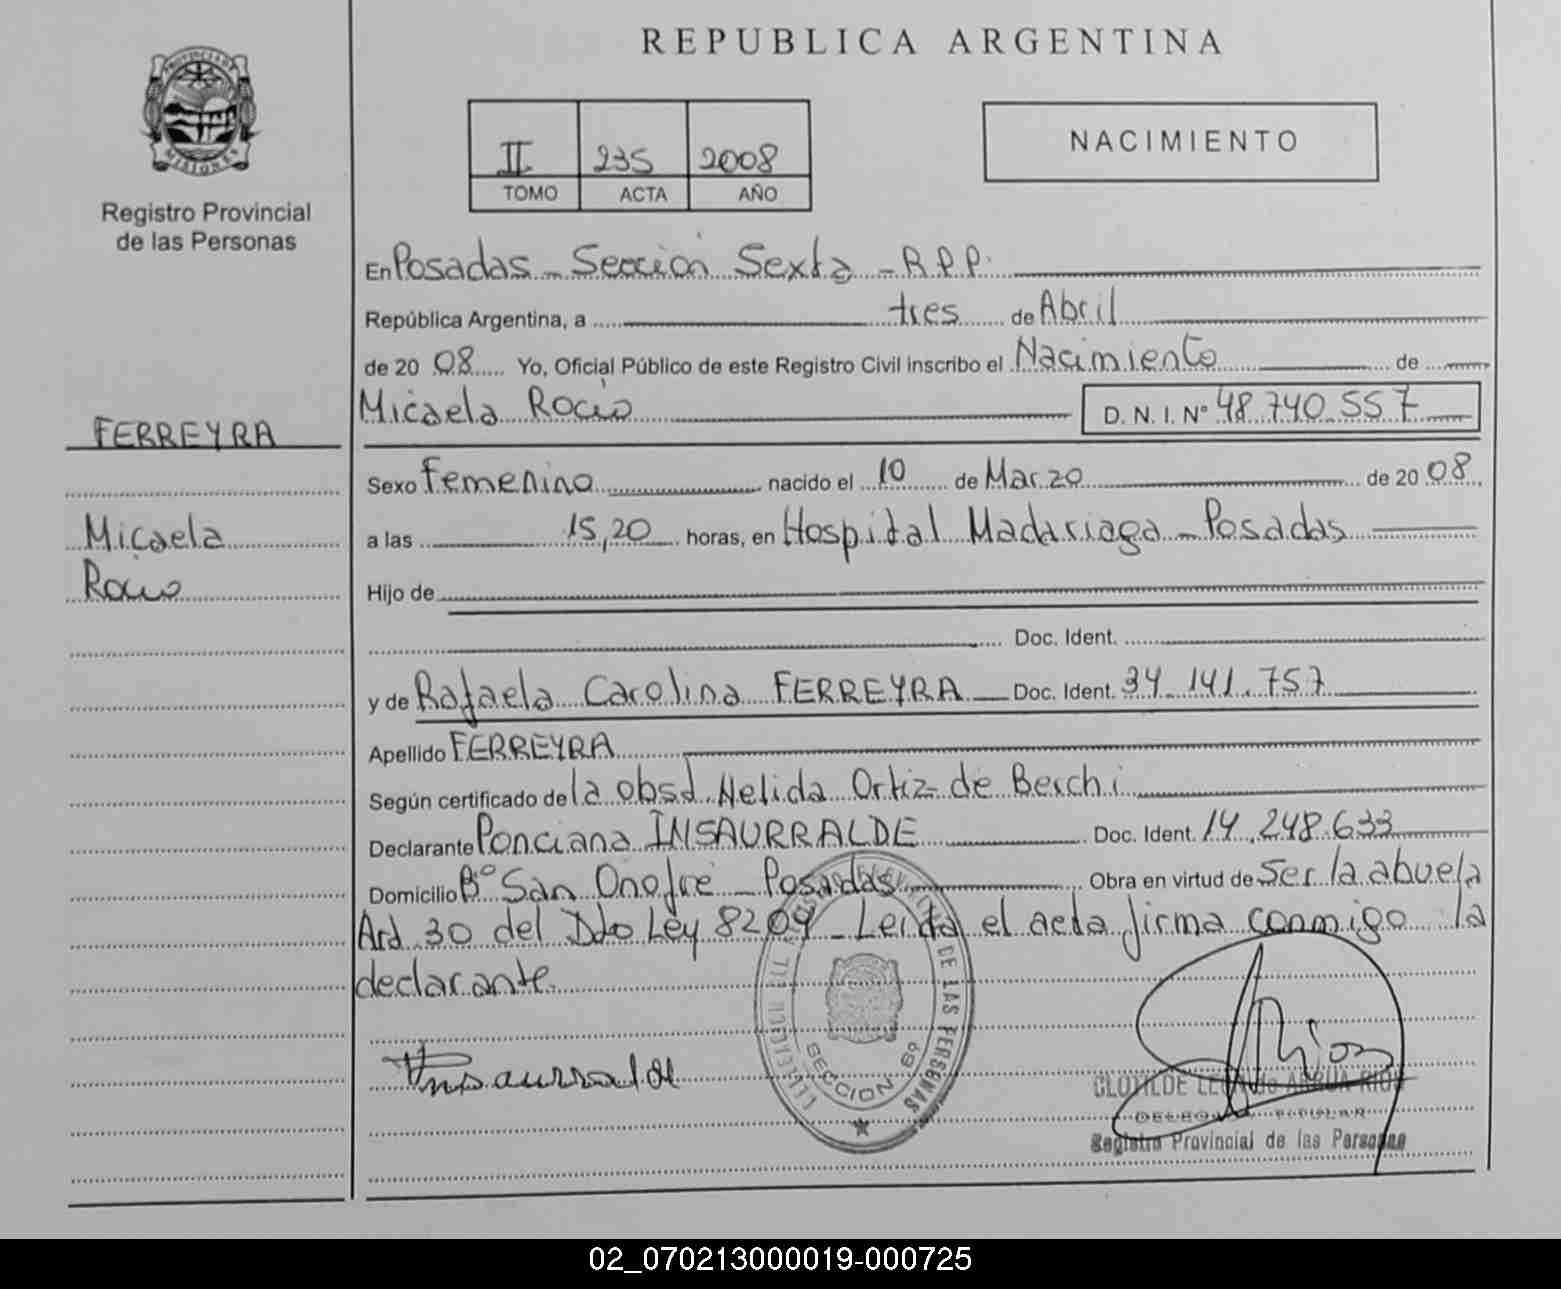 REPUBLICA ARGENTINA
PROVINCIA DE MISIONES
Registro Provincial
de las Personas
II 235 2008
TOMO ACTA AÑO
NACIMIENTO
En Posadas - Sección Sexta - R.P.P.
República Argentina, a tres de Abril
de 2008 Yo, Oficial Público de este Registro Civil inscribo el Nacimiento de
Micaela Rocío D. N. I. Nº 48.740.557
FERREYRA
Micaela
Rocio
Sexo Femenino nacido el 10 de Marzo de 2008
a las 15,20 horas, en Hospital Madariaga - Posadas
Hijo de
Doc. Ident.
y de Rafaela Carolina FERREYRA Doc. Ident. 34.141.757
Apellido FERREYRA
Según certificado de la obst. Nelida Ortiz de
Declarante Ponciana INSAURRALDE Doc. Ident. 14.248.633
Domicilio Bº San Onofre - Posadas Obra en virtud de ser la abuela
Art 30 del Dto Ley 8204 - Leída el acta firma conmigo la
declarante.
Insaurralde
DE LAS PERSONAS
SECCION 6º
CLOTILDE
TITULAR
Registro Provincial de las Personas
02_070213000019-000725